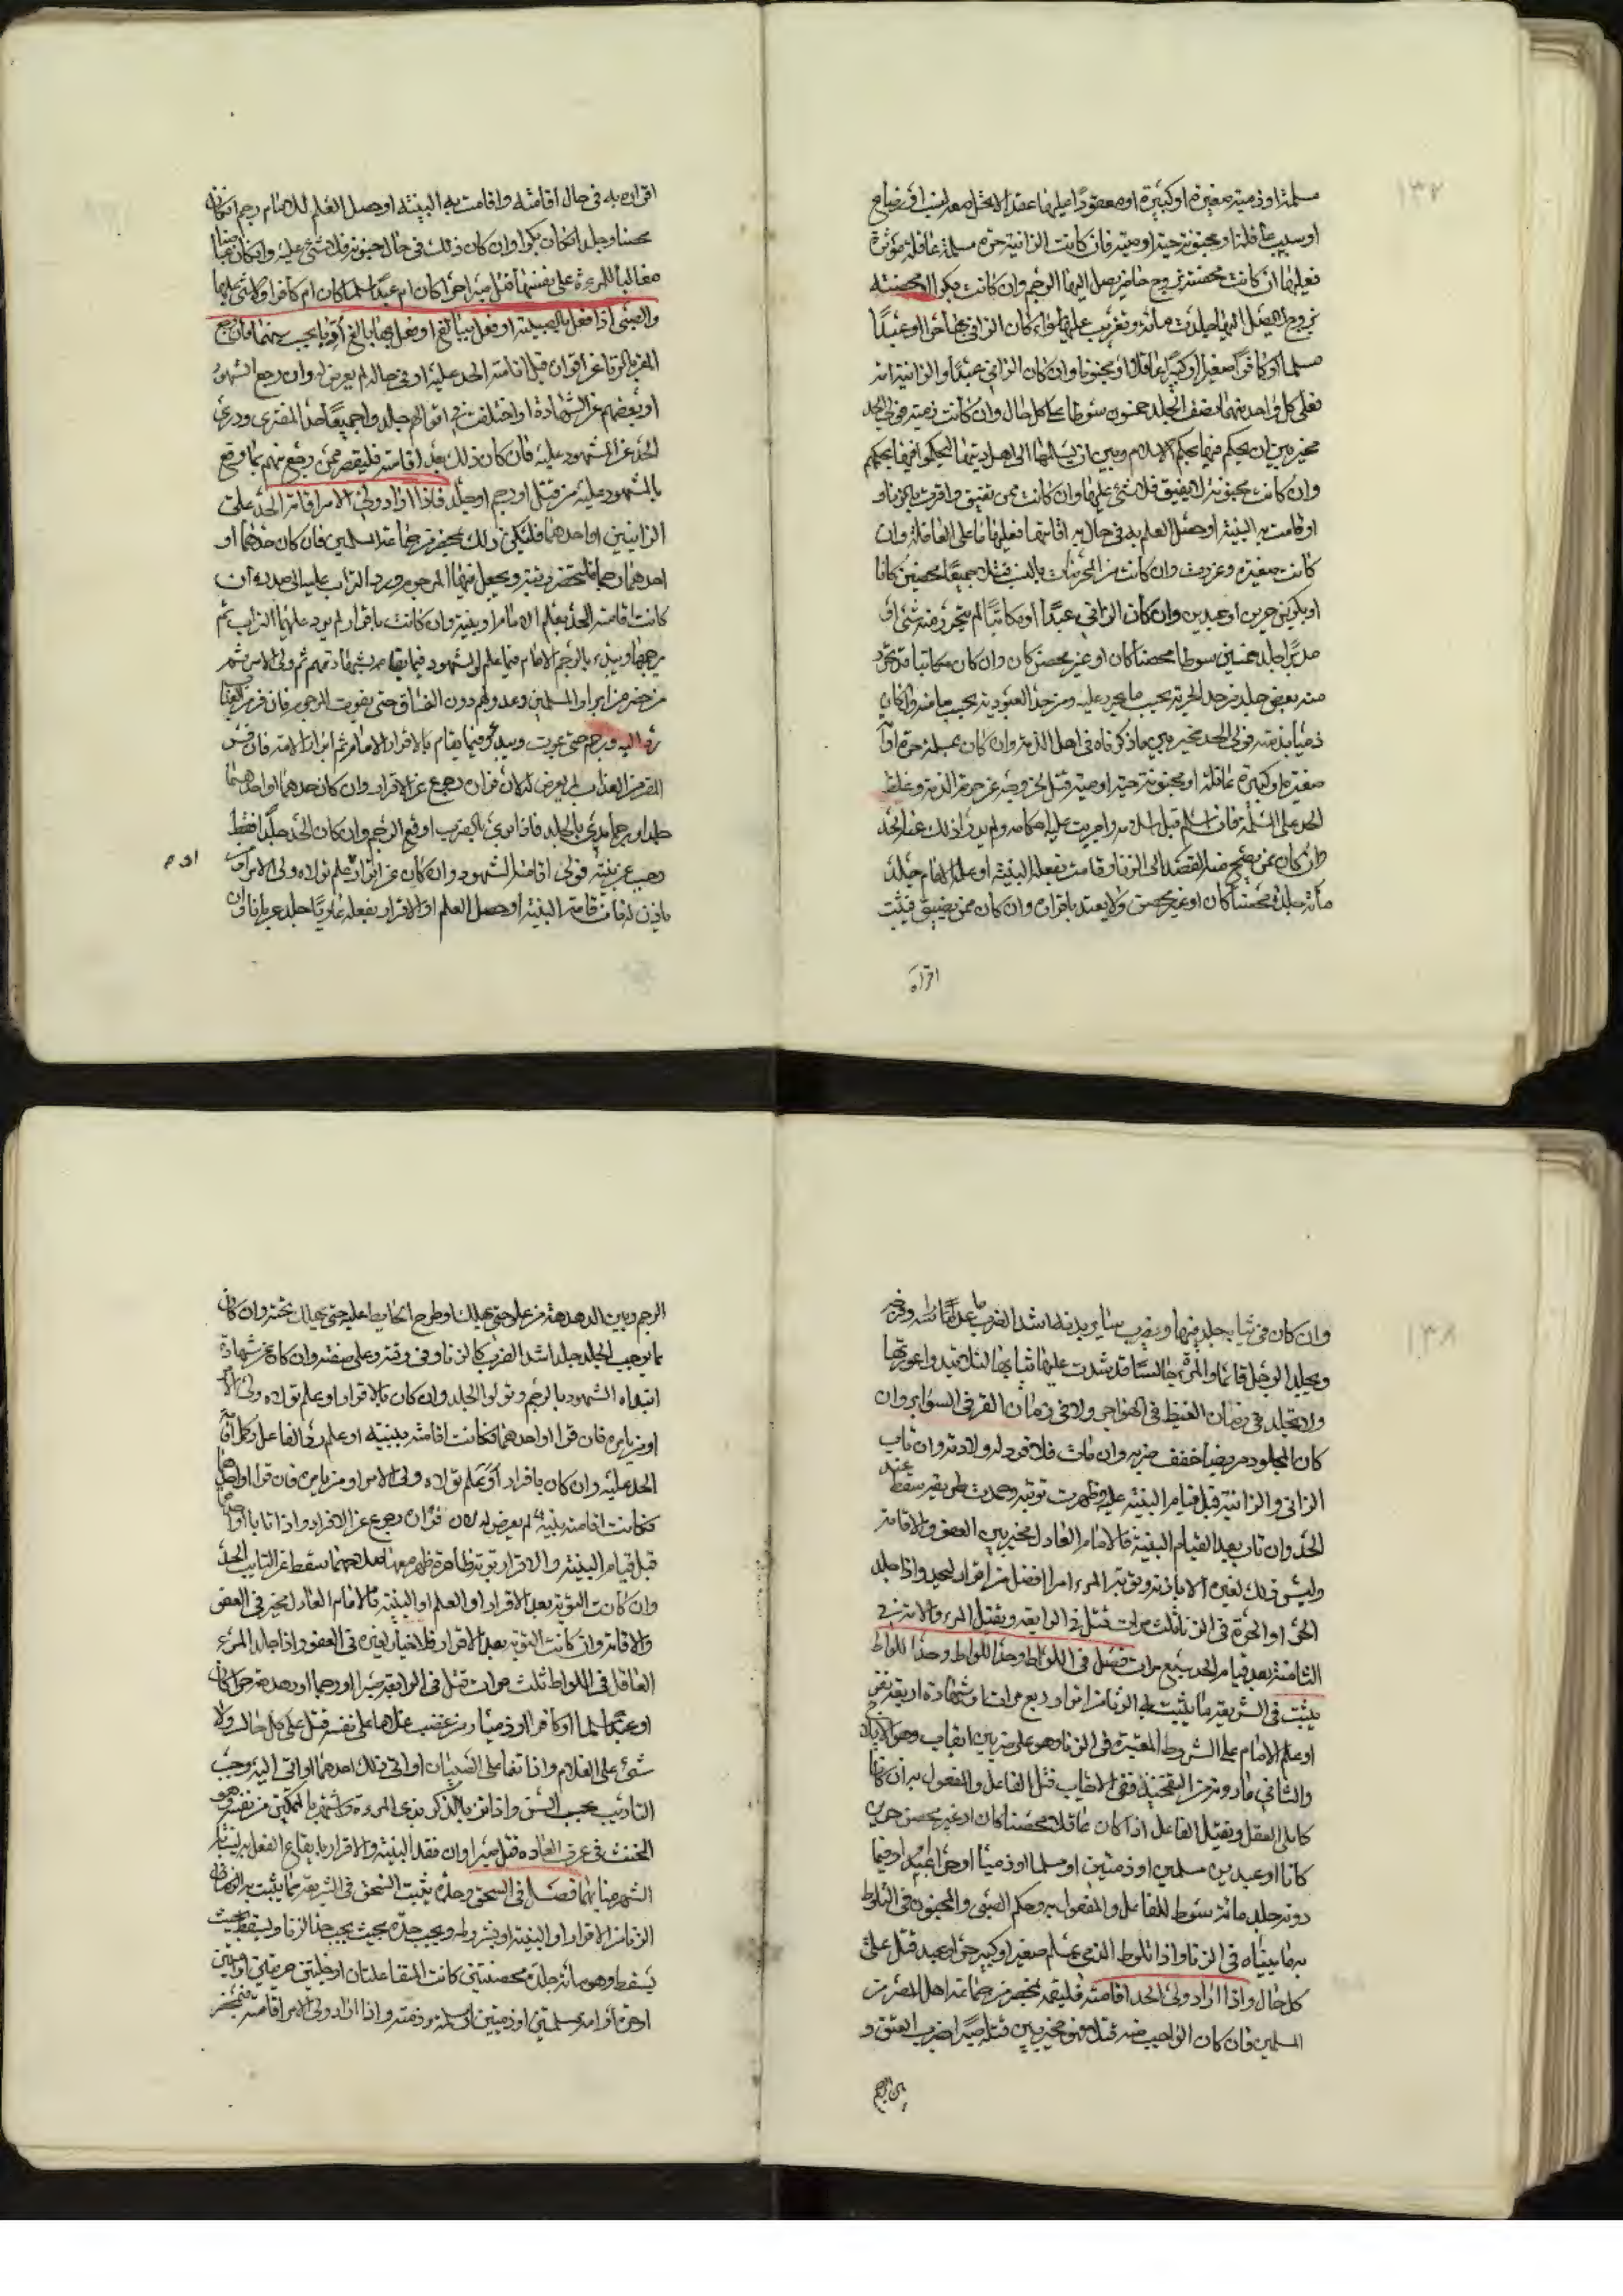 ١٣٧
مسلمة او ذمية صغيرة او كبيرة او معقودا عليها عقد لا يحل معه
او سبب عاقلة او مجنونة حية او ميتة فان كانت الزانية حرة مسلمة عاقلة مؤثرة
فعليها ان كانت محصنة بزوج حاضر يصل اليها الرجم وان كانت بكرا او محصنة
بزوج لا يصل اليها جلدت مائة وتغريب عليها سواء كان الزاني بها حرا او عبدا
مسلما او كافرا صغيرا او كبيرا عاقلا او مجنونا وان كان الزاني عبدا والزانية امة
فعلى كل واحد منهما نصف الجلد خمسون سوطا على كل حال وان كانت ذمية فولي الحد
مخير بين ان يحكم فيها بحكم الاسلام وبين ان يسلمها الى اهل دينها ليحكموا فيها بحكمهم
وان كانت مجنونة لا تفيق فلا شيء عليها وان كانت ممن تفيق واقرت
او قامت به البينة او حصل العلم به في حال افاقتها فعليها ما على العاقلة وان
كانت صغيرة عزرت وان كانت من المحرمات بالنسب قتلا جميعا محصنين كانا
او بكرين حرين او عبدين وان كان الزاني عبدا او مكاتبا لم يتحرر منه شيء او
مدبرا جلد خمسين سوطا محصنا كان او غير محصن وان كان مكاتبا قد تحرر
منه بعض جلد من حد الحرية بحسب ما تحرر عليه ومن حد العبودية بحسب ما منه وان كان
ذميا بذمية فولي الحد مخير بين ما ذكرناه في اهل الذمة وان كان بمسلمة حرة او امة
صغيرة او كبيرة عاقلة او مجنونة حية او ميتة قتل لخروجه عن حرمة الذمة وغلظ
الحد على المسلمة فان اسلم قبل اسلامه واجريت عليه احكامه ولم يدرأ ذلك عنه الحد
وان كان ممن يصح منه القصد الى الزنا وقامت بفعله البينة او علم الامام جلد
مائة جلدة محصنا كان او غير محصن ولا يعتد باقراره وان كان ممن يفيق فثبت
اقراره
اقراره به في حال افاقته واقامت به البينة او حصل العلم للامام رجم ان كان
محصنا وجلد ان كان بكرا وان كان ذلك في حال جنونه فلا شيء عليه وان كان
مغالبا للمرءة على نفسها قتل صبرا حرا كان ام عبدا مسلما كان ام كافرا ولا شيء عليها
والصبي اذا فعل بالصبية او فعل ببالغ او فعل بهما بالغ ادبا بحسب سنهما فان رجع
المقر بالزنا عن اقراره قبل اقامة الحد عليه او في حاله لم يعرض له وان رجع الشهود
او بعضهم عن الشهادة او اختلفت اقوالهم جلدوا جميعا حد المفتري ودرئ
الحد عن المشهود عليه فان كان ذلك بعد اقامته فليقتص ممن رجع منهم بما وقع
بالمشهود عليه من قتل او رجم او جلد فاذا اراد ولي الامر اقامة الحد على
الزانيين او احدهما فليكن ذلك بمحضر من جماعة المسلمين فان كان حدهما او
احدهما رجما فليحفر زبية ويجعل فيها المرجوم ويرد التراب عليه الى صدره ان
كانت اقامة الحد بعلم الامام او ببينة وان كانت باقرار لم يرد عليهما التراب ثم
يرجمها ويبدء بالرجم الامام فيما علم والشهود فيما يقام بشهادتهم ثم ولي الامر ثم
من حضر من ابرار المسلمين وعدولهم دون الفساق حتى يفوت المرجوم فان فر
رد اليه ورجم حتى يموت ويبدء فيما يقام بالاقرار الامام ثم ابرار الامة فان فر
المقر من العذاب لم يعرض له لان فراره رجوع عن الاقرار وان كان حدهما او احدهما
جلدا ورجما بدئ بالجلد فاذا اوقع الرجم وان كان الحد جلدا فقط
وجب عن بينة فولي اقامته الشهود وان كان عن اقرار او علم تولاه ولي الامر او من
ياذن له فان قامت البينة او حصل العلم او الاقرار بفعله عاريا جلد عريانا وان
١٣٨
وان كان في ثيابه جلد فيها ويضرب سائر بدنه اشد الضرب ما عدا راسه وفرجه
ويجلد الرجل قائما والمرءة جالسة قد شدت عليها ثيابها لئلا تبدوا عورتها
ولا يجلد في زمان القيظ في الهواجر ولا في زمان القر في السوابر وان
كان المجلود مريضا خفف ضربه وان مات فلا قود له ولا دية وان تاب
الزاني والزانية قبل قيام البينة عليه وظهرت توبته وحمدت طريقته سقط عنه
الحد وان تاب بعد القيام البينة فالامام العادل مخير بين العفو والاقامة
وليس ذلك لغيره الا باذنه وتوبة المرء سرا افضل من اقراره ليحد واذا جلد
الحر او الحرة في الزنا ثلث مرات قتل في الرابعة ويقتل العبد والامة في
الثامنة بعد قيام الحد سبع مرات فصل في اللواط وحد اللواط وحد اللواط
يثبت في الشريعة بما يثبت به الزنا من اقرار اربع مرات وشهادة اربعة نفر
او علم الامام على الشروط المعتبرة في الزنا وهو على ضربين ايقاب وهو الايلاج
والثاني ما دونه من التفخيذ ففي الايقاب قتل الفاعل والمفعول به ان كانا
كاملي العقل ويقتل الفاعل اذا كان عاقلا محصنا كان او غير محصن حرين
كانا او عبدين مسلمين او ذميين او مسلما او ذميا او حرا وعبدا وفيما
دونه جلد مائة سوط للفاعل والمفعول به وحكم الصبي والمجنون في التلوط
به ما بيناه في الزنا واذا تلوط الذمي بمسلم صغير او كبير حر او عبد قتل على
كل حال واذا اراد ولي الحد اقامته فليقمه بمحضر من جماعة اهل المصر من
المسلمين فان كان الواجب منه قتلا فهو مخير بين قتله صبرا لضرب العنق و
بين الرجم
الرجم وبين الدهدهة من علو حتى يهلك او طرح الحايط عليه حتى يهلك تحته وان كان
بما يوجب الجلد جلد اشد الضرب كالزنا وفي وقته وعلى صفته وان كان عن شهادة
ابتداه الشهود بالرجم وتولوا الجلد وان كان بالاقرار او علم تولاه ولي الامر
او من يامره فان فرا او احدهما وكانت اقامته ببينة او علم رد الفاعل وكمل اقامة
الحد عليه وان كان باقرار او بعلم تولاه ولي الامر او من يامره فان فرا او احدهما
وكانت اقامته ببينة لم يعرض له لان فراره رجوع عن الاقرار واذا تابا او احدهما
قبل قيام البينة والاقرار توبة ظاهرة ظهر معها صلاحهما سقط عن التايب الحد
وان كانت التوبة بعد الاقرار او العلم او البينة فالامام العادل مخير في العفو
والاقامة وان كانت التوبة بعد الاقرار فلا خيار لغيره في العفو واذا جلد المرء
العاقل في اللواط ثلث مرات قتل في الرابعة صبرا او رجما او دهدهة حرا كان
او عبدا مسلما او كافرا او ذميا ومن غصب غلاما على نفسه قتل على كل حال ولا
شيء على الغلام واذا تفاعل الصبيان او اتى ذلك احدهما او اتى اليه وجب
التاديب بحسب السن واذا تزيا الذكر بزي المرءة واشتهر بالتمكين من نفسه وهو
المخنث في عرف العادة قتل صبرا وان فقد البينة والاقرار بايقاع الفعل به لنيابة
الشهرة منابهما فصل في السحق وحده يثبت السحق في الشريعة بما يثبت به
الزنا من الاقرار او البينة او بشروطه ويجب حده بحيث يجب حد الزنا ويسقط بحيث
يسقط وهو مائة جلدة محصنتين كانت المتفاعلتان او خليتين حرتين او امتين
او حرة وامة مسلمتين او ذميتين او مسلمة وذمية واذا اراد ولي الامر اقامته فبمحضر